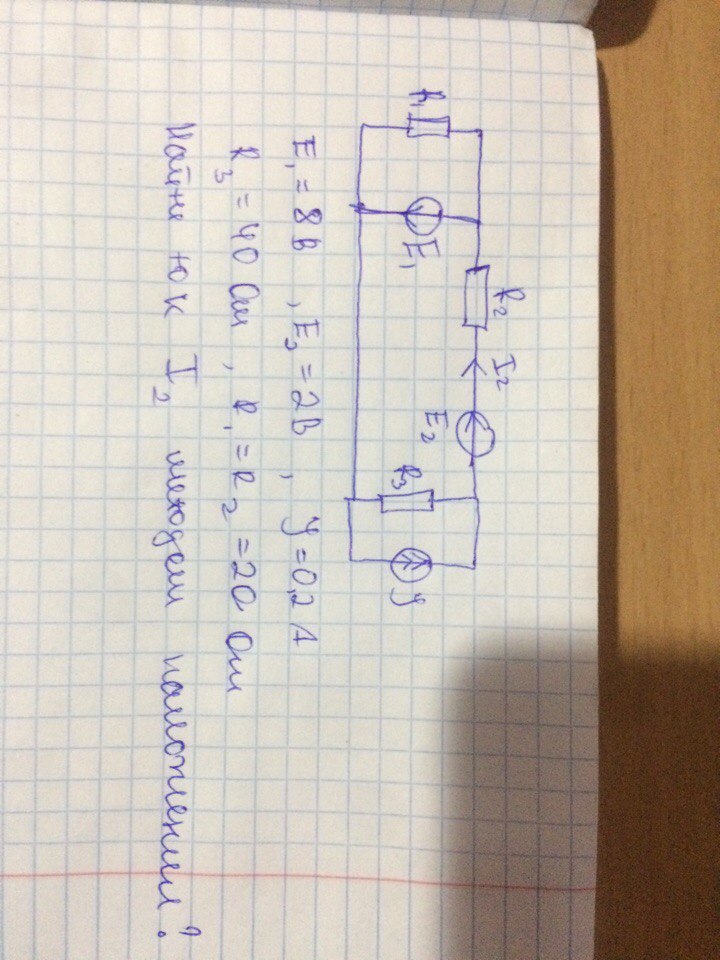 R₁
E₁
R₂
I₂
E₂
R₃
У
E₁ = 8В , E₂ = 2В , У = 0,2 А
R₃ = 40 Ом , R₁ = R₂ = 20 Ом
Найти ток I₂ методом наложения?